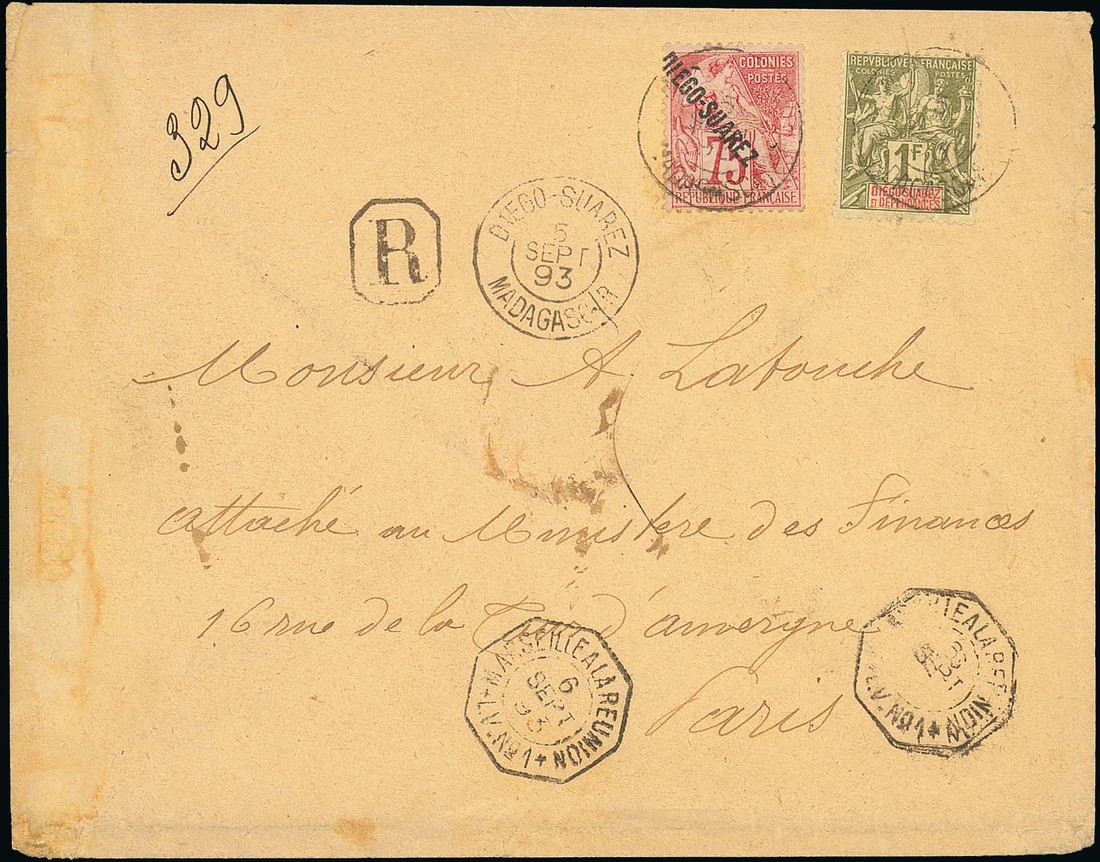 329
COLONIES
POSTES
DIÉGO-SUAREZ
75
REPUBLIQUE FRANÇAISE
REPVBLIQVE FRANÇAISE
COLONIES POSTES
1F
DIEGO-SUAREZ
ET DÉPENDANCES
R
DIEGO-SUAREZ
5
SEPT
93
MADAGASCAR
Monsieur A. Latouche
attaché au Ministere des Finances
16 rue de la Tour d'amergne
Paris
MARSEILLE A LA REUNION
6
SEPT
93
LV. Nº1
LA REUNION
SEPT
LV. Nº1